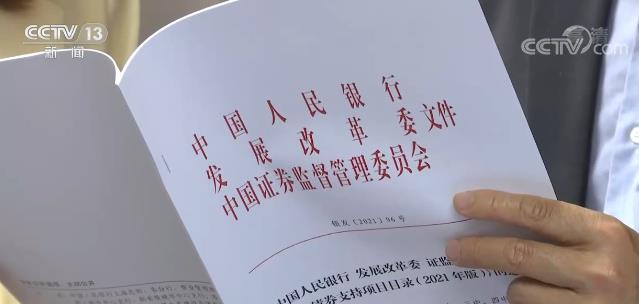 CCTV 13
新闻
CCTV.com
高清
中国人民银行
发展改革委文件
中国证券监督管理委员会
银发〔2021〕96号
中国人民银行 发展改革委 证监
债券支持项目目录(2021年版)》的